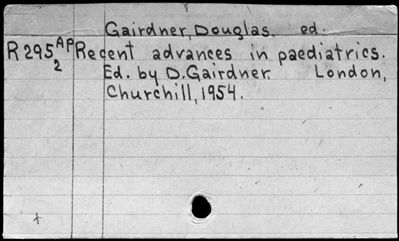 Gairdner, Douglas, ed.
R295 AP Recent advances in paediatrics.
2 Ed. by D. Gairdner. London,
Churchill, 1954.
x